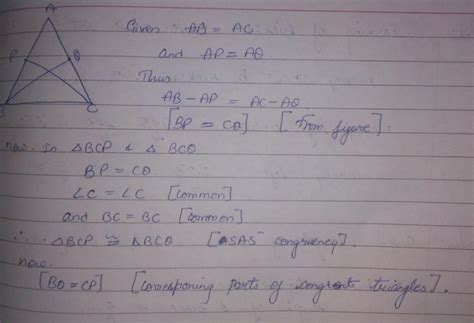 A
P Q
C
Given AB = AC
and AP = AQ
Thus
AB - AP = AC - AQ
[BP = CQ] [from figure]
now in △BCP & △BCQ
BP = CQ
∠C = ∠C [common]
and BC = BC [common]
∴ △BCP ≅ △BCQ ["SAS" congruency].
now.
[BQ = CP] [corresponing parts of congrent triangles].